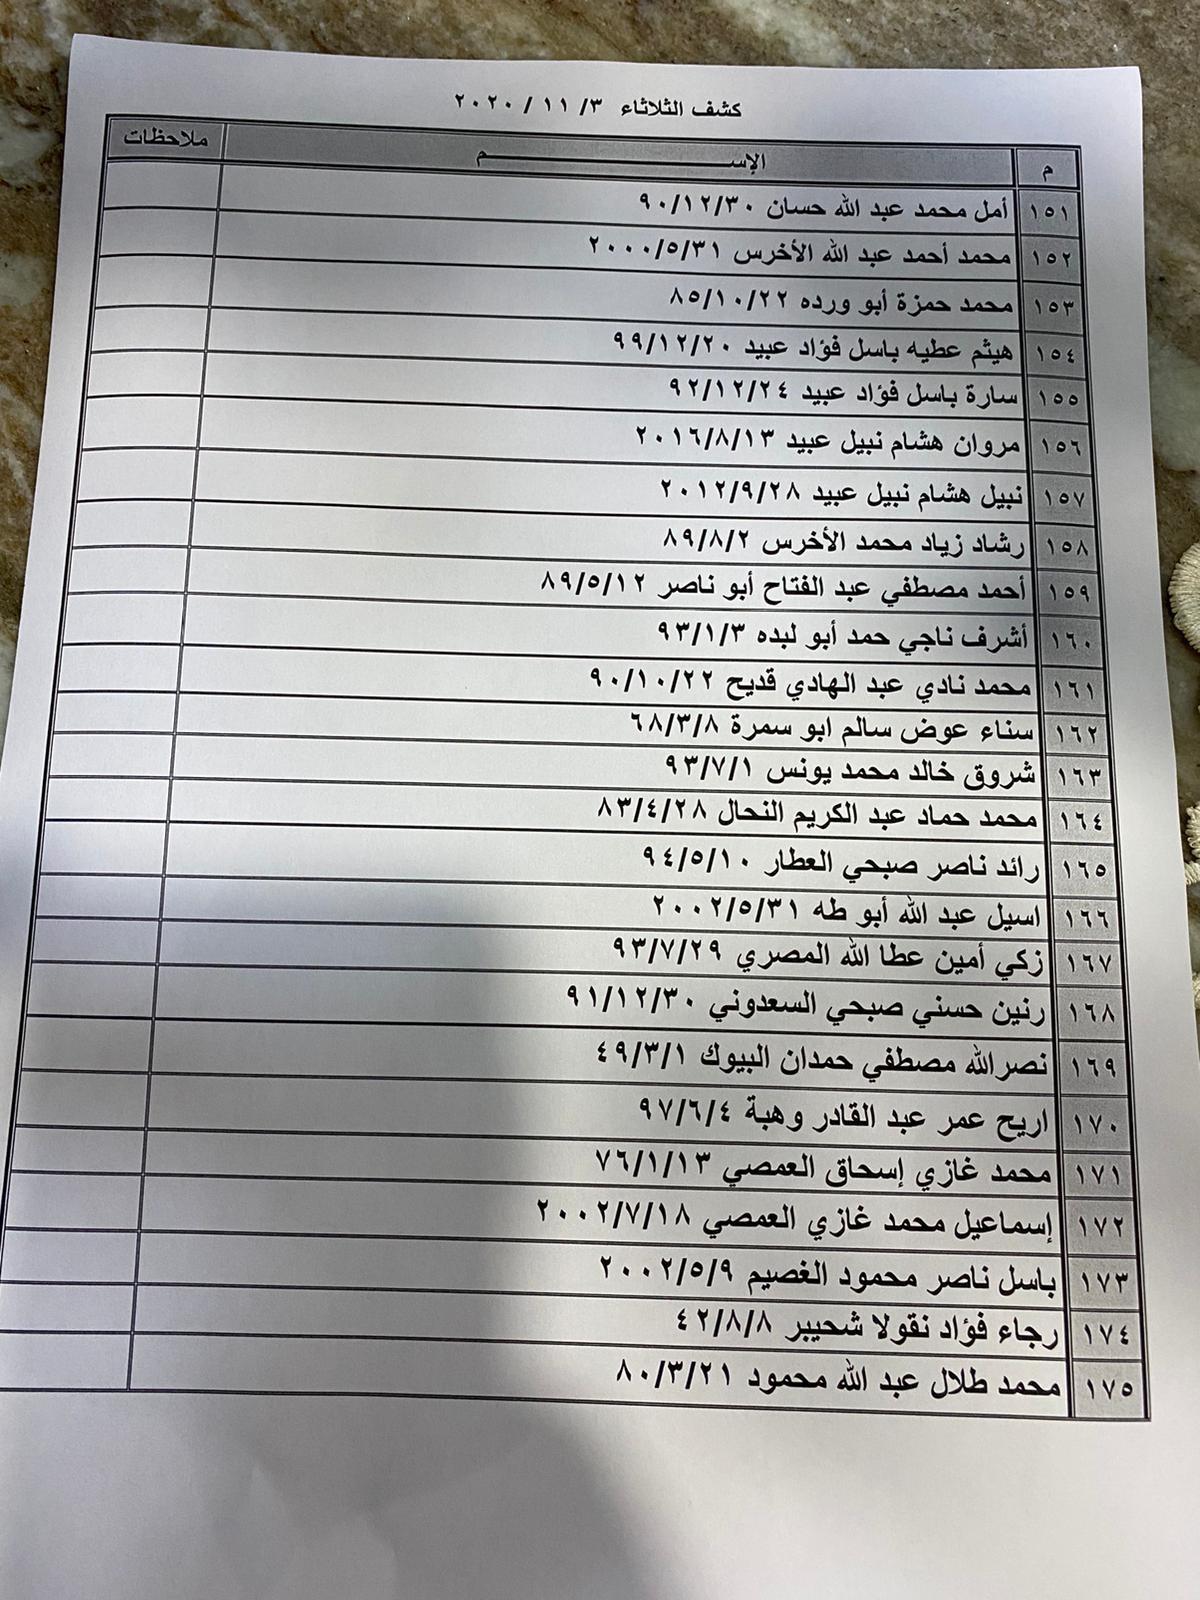 كشف الثلاثاء ٣/ ١١ / ٢٠٢٠
م الإســـــــــــم ملاحظات
١٥١ أمل محمد عبد الله حسان ٩٠/١٢/٣٠
١٥٢ محمد أحمد عبد الله الأخرس ٢٠٠٠/٥/٣١
١٥٣ محمد حمزة أبو ورده ٨٥/١٠/٢٢
١٥٤ هيثم عطيه باسل فؤاد عبيد ٩٩/١٢/٢٠
١٥٥ سارة باسل فؤاد عبيد ٩٢/١٢/٢٤
١٥٦ مروان هشام نبيل عبيد ٢٠١٦/٨/١٣
١٥٧ نبيل هشام نبيل عبيد ٢٠١٢/٩/٢٨
١٥٨ رشاد زياد محمد الأخرس ٨٩/٨/٢
١٥٩ أحمد مصطفي عبد الفتاح أبو ناصر ٨٩/٥/١٢
١٦٠ أشرف ناجي حمد أبو لبده ٩٣/١/٣
١٦١ محمد نادي عبد الهادي قديح ٩٠/١٠/٢٢
١٦٢ سناء عوض سالم ابو سمرة ٦٨/٣/٨
١٦٣ شروق خالد محمد يونس ٩٣/٧/١
١٦٤ محمد حماد عبد الكريم النحال ٨٣/٤/٢٨
١٦٥ رائد ناصر صبحي العطار ٩٤/٥/١٠
١٦٦ اسيل عبد الله أبو طه ٢٠٠٢/٥/٣١
١٦٧ زكي أمين عطا الله المصري ٩٣/٧/٢٩
١٦٨ رنين حسني صبحي السعدوني ٩١/١٢/٣٠
١٦٩ نصرالله مصطفي حمدان البيوك ٤٩/٣/١
١٧٠ اريح عمر عبد القادر وهبة ٩٧/٦/٤
١٧١ محمد غازي إسحاق العمصي ٧٦/١/١٣
١٧٢ إسماعيل محمد غازي العمصي ٢٠٠٢/٧/١٨
١٧٣ باسل ناصر محمود الغصيم ٢٠٠٢/٥/٩
١٧٤ رجاء فؤاد نقولا شحيبر ٤٢/٨/٨
١٧٥ محمد طلال عبد الله محمود ٨٠/٣/٢١